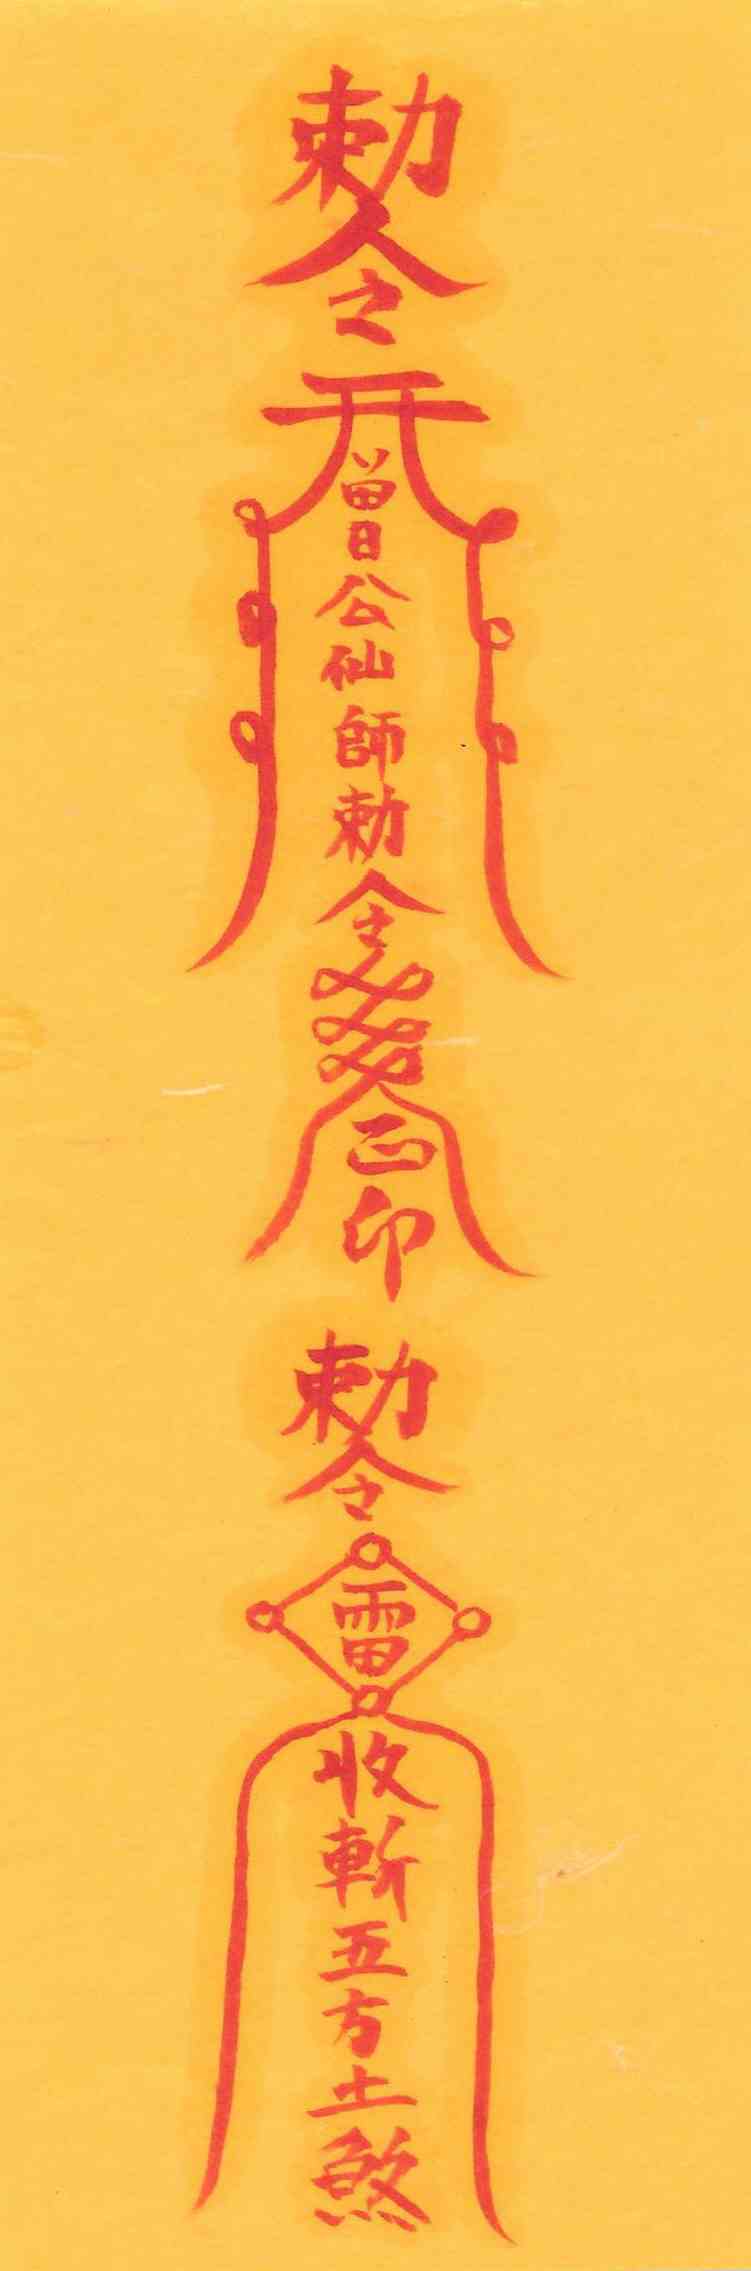 勅令
曾公仙師勅令
正印
勅令
雷
收斬五方土煞